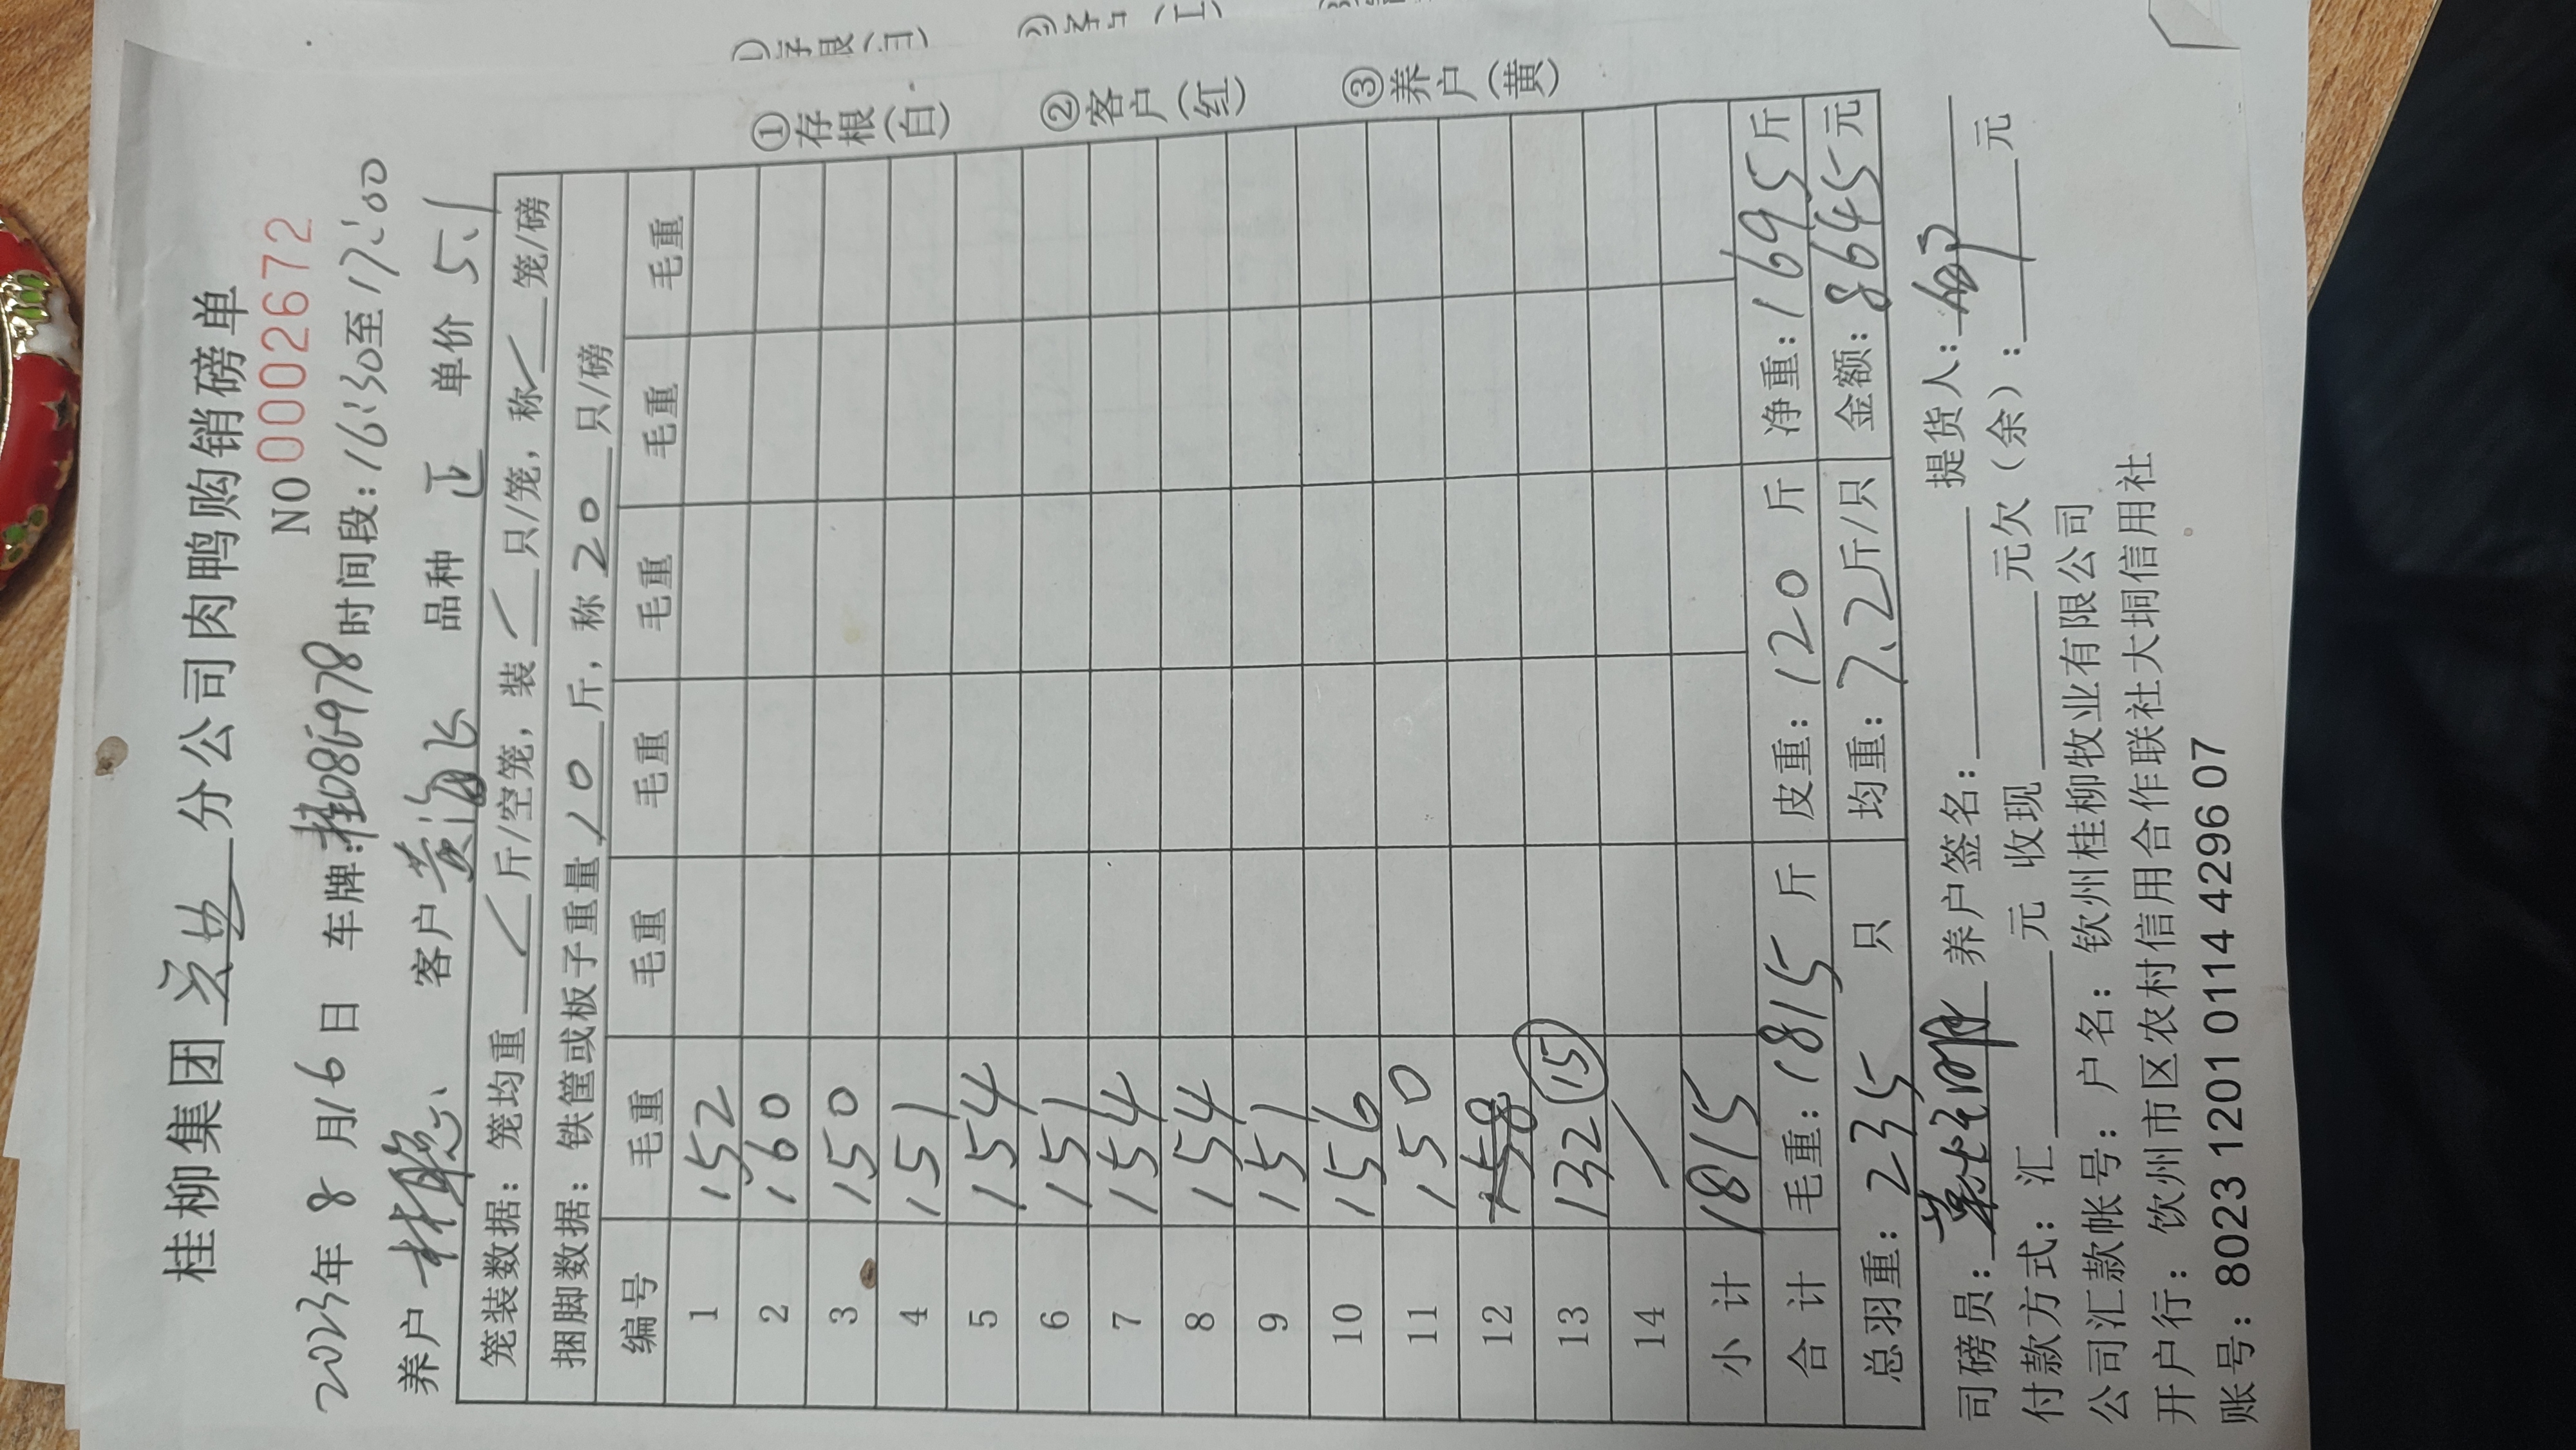 桂柳集团灵山分公司肉鸭购销磅单
NO 0002672
2023年 8 月16 日 车牌:桂08G-978 时间段:16:30至17:00
养户 林聪 客户 黄海飞 品种 正 单价 5.1
笼装数据:笼均重 / 斤/空笼,装 / 只/笼,称 / 笼/磅
捆脚数据:铁筐或板子重量 10 斤,称 20 只/磅
编号 毛重 毛重 毛重 毛重 毛重 毛重
1 152
2 160
3 150
4 151
5 154
6 151
7 154
8 154
9 151
10 156
11 150
12
13 132 (15)
14 /
小 计 1815
合 计 毛重:1815 斤 皮重:120 斤 净重:1695斤
总羽重:235 只 均重:7.2斤/只 金额:8645元
司磅员: 养户签名: 提货人:
付款方式:汇 元 收现 元欠(余): 元
公司汇款帐号:户名:钦州桂柳牧业有限公司
开户行:钦州市区农村信用合作联社大垌信用社
账号:8023 1201 0114 4296 07
①存根(白) ②客户(红) ③养户(黄)